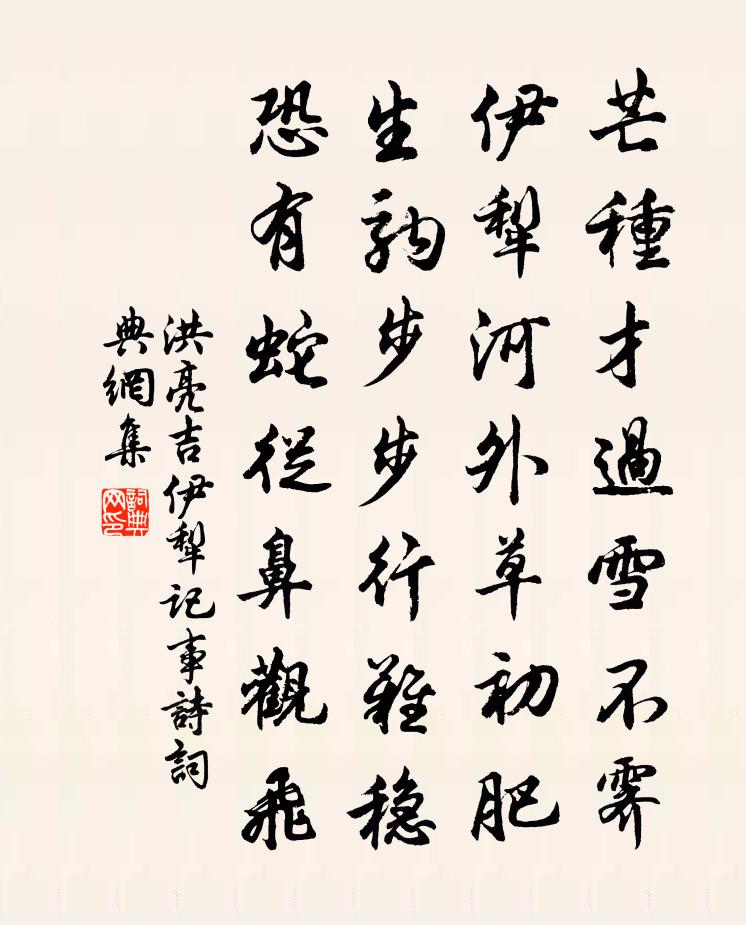 芒種才過雪不霽
伊犁河外草初肥
生駒步步行難稳
恐有蛇從鼻觀飛
洪亮吉伊犁記事詩詞
典網集
詞典
网印